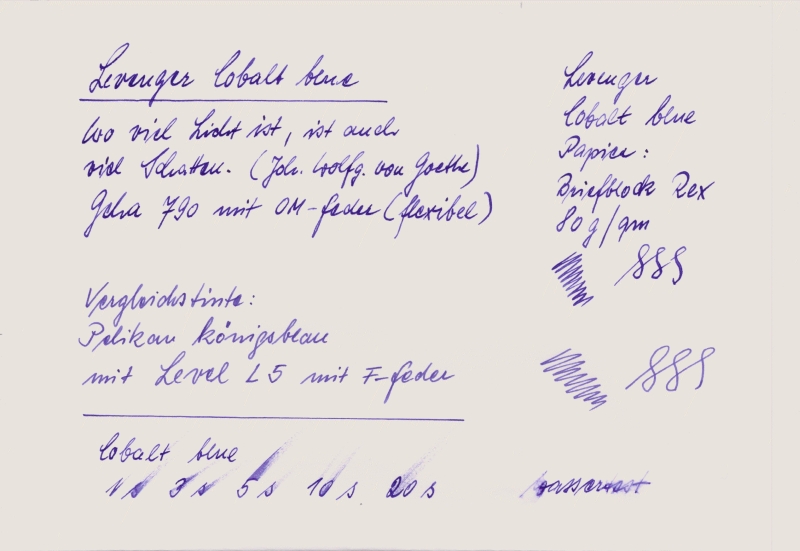 Levenger Cobalt blue
Wo viel Licht ist, ist auch
viel Schatten. (Joh. Wolfg. von Goethe)
Geha 790 mit OM-Feder (flexibel)
Vergleichstinte:
Pelikan Königsblau
mit Level L5 mit F-Feder
Cobalt blue
1 s 3 s 5 s 10 s 20 s
Levenger
Cobalt blue
Papier:
Briefblock Rex
80 g/qm
Wassertest